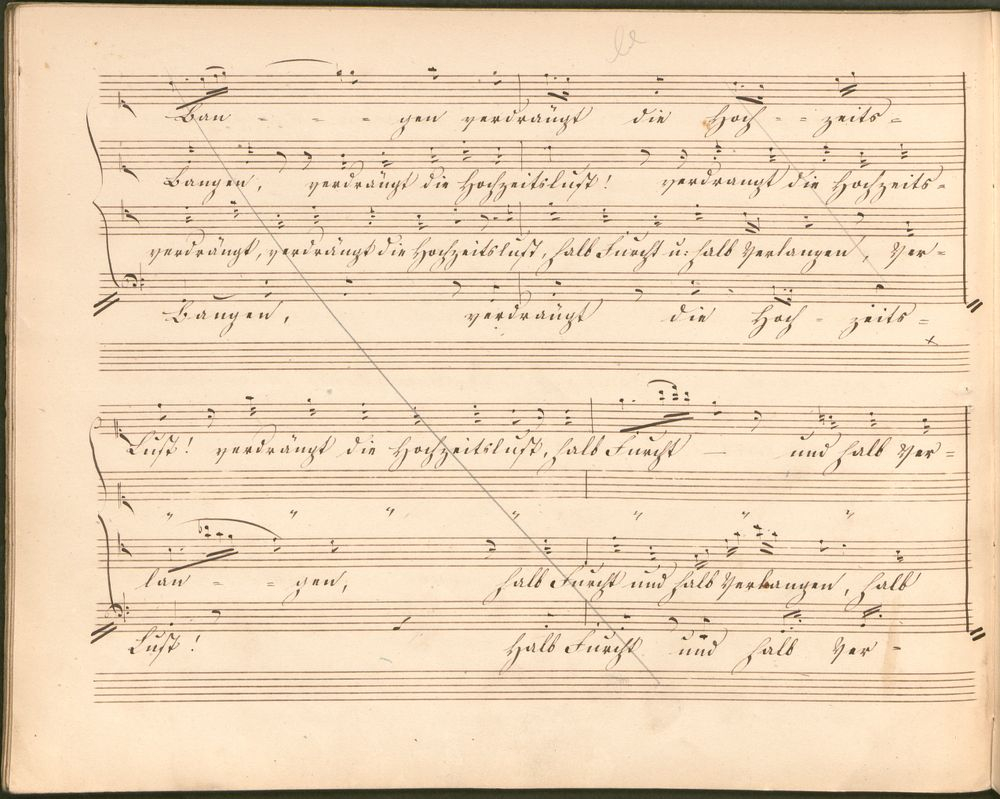 Ban - - - gen verdrängt die Hoch - - zeits-
Bangen, verdrängt die Hochzeitslust! verdrängt die Hochzeits-
verdrängt, verdrängt die Hochzeitslust, halb Furcht u: halb Verlangen, Ver-
Bangen, verdrängt die Hoch - zeits-
Lust! verdrängt die Hochzeitslust, halb Furcht — und halb Ver-
" " " " " " "
lan - - gen, halb Furcht und halb Verlangen, halb
Lust! Halb Furcht und halb Ver-